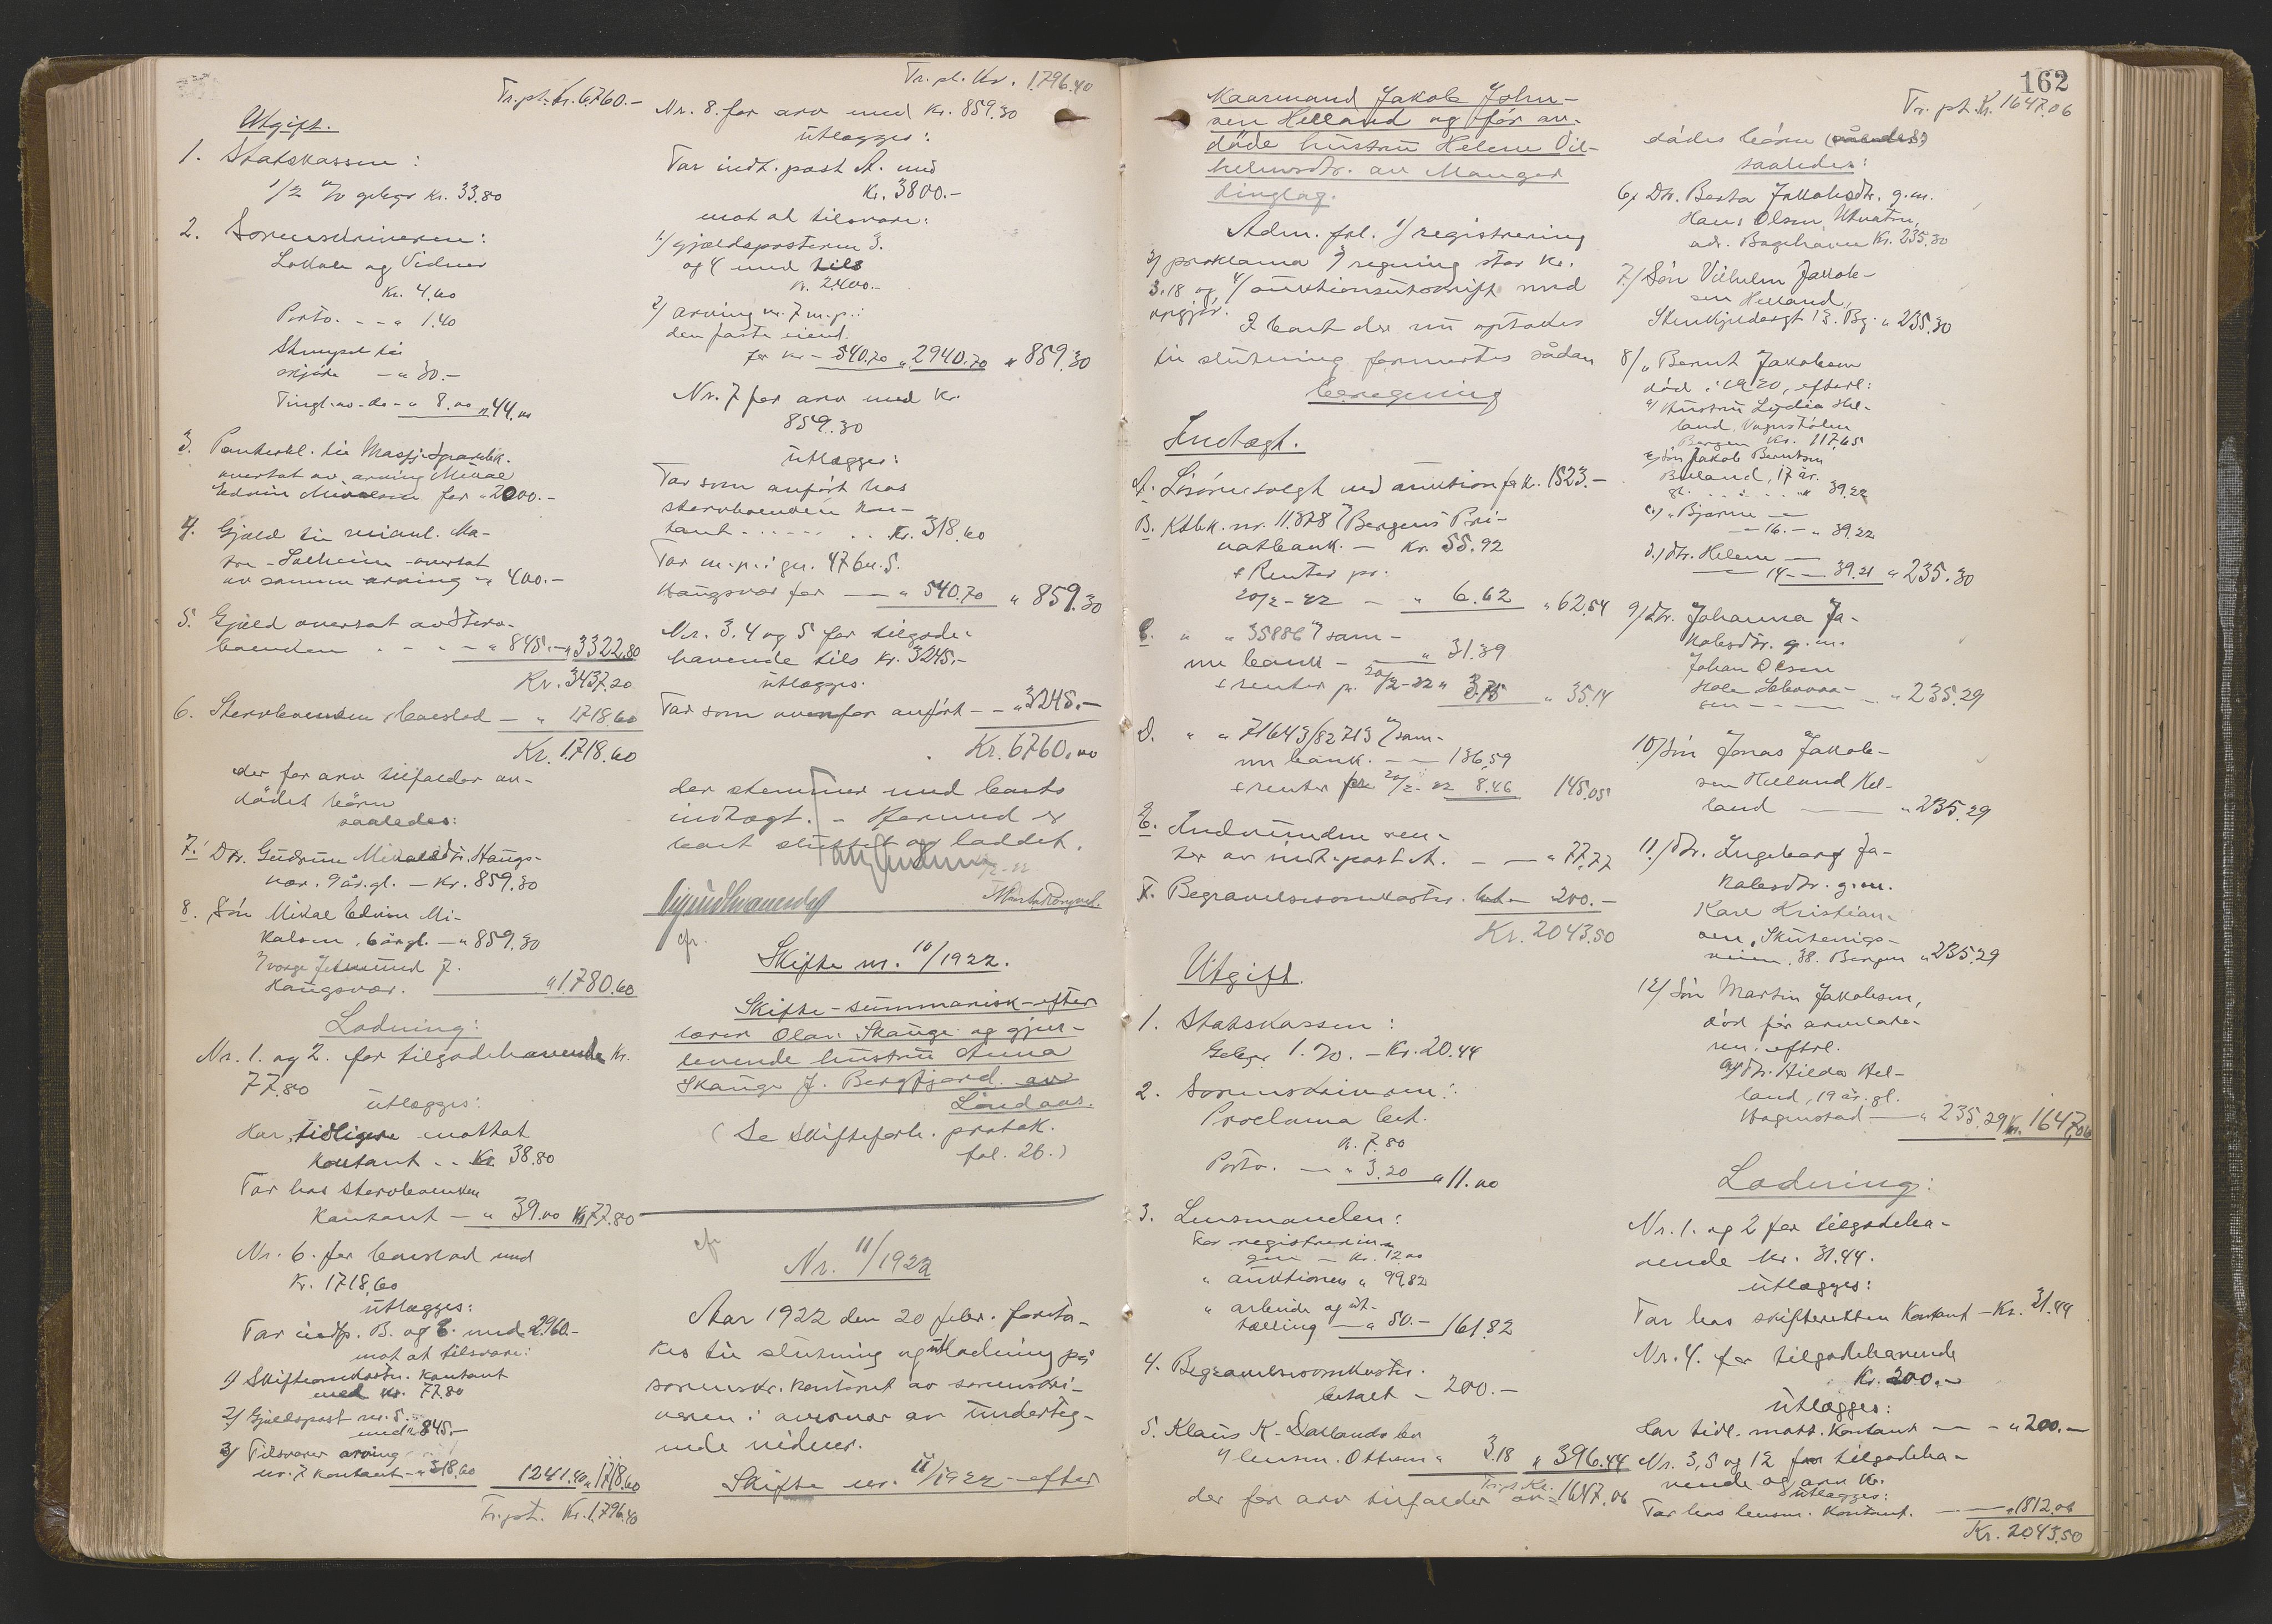 Tr. pt. Kr. 6760.-
Utgift.
1. Statskassen:
1/2 % gebyr Kr. 33.80
2. Sorenskriveren:
Lokale og Vidner
Kr. 4.60
Porto. - - " 1.40
Stempel til
skjöte - " 30.-
Tingl. av do - " 8.00 " 44.00
3. Panteobl. til Masfj. Sparebk.
overtat av arving Mikal
Edvin Mikalsen for " 2000.-
4. Gjæld til
overtat
av samme arving - " 400.-
5. Gjæld overtat av sterv-
boenden - - - " 845.- " 3322.80
Kr. 3437.20
6. Stervboenden boeslod - " 1718.60
Kr. 1718.60
der for arv tilfalder av-
dödes börn
saaledes:
7. Dtr. Gudrun Mikalsdtr. Haugs-
vær. 9 år. gl. - Kr. 859.30
8. Sön Mikal Edvin Mi-
kalsen, 6 år gl. - " 859.30
Haugsvær. " 1780.60
Lodning:
Nr. 1. og 2. for tilgodehavende Kr.
77.80
utlægges:
Har tidligere mottat
kontant . . Kr. 38.80
Tar hos stervboenden
kontant - " 39.00 Kr. 77.80
Nr. 6. for boeslod med
Kr. 1718.60
utlægges:
Tar indtp. B. og C. med " 2960.-
mot at tilsvare:
1/ Skifteomkostn. kontant
med Kr. 77.80
2/ Gjældspost nr. 5.
med " 845.-
3/ Tilsvarer arving
nr. 7 kontant - " 318.60 1241.40 " 1718.60
Tr. pt. Kr. 1796.40
Tr. pt. Kr. 1796.40
Nr. 8. for arv med Kr. 859.30
utlægges:
Tar indt. post A. med
Kr. 3800.-
mot at tilsvare:
1/ gjældsposterne 3.
og 4 med tils
Kr. 2400.-
2/ arving nr. 7 m. p. i
den faste eiend.
for Kr - 540.70 " 2940.70 " 859.30
Nr. 7 for arv med Kr.
859.30
utlægges:
Tar som anfört hos
stervboenden kon-
tant - - - - . . Kr. 318.60
Tar m. p. i gn. 47 bn. 5.
Haugsvær for - " 540.70 " 859.30
Nr. 3. 4 og 5 for tilgode-
havende tils Kr. 3245.-
utlægges.
Tar som ovenfor anfört - - " 3245.-
Kr. 6760.00
der stemmer med boets
indtægt. - Hermed er
boet sluttet og loddet.
cfr.
Skifte nr. 10/1922.
Skifte - summarisk - efter
lærer Olav Skauge og gjen-
levende hustru Anna
Skauge f. Bergfjord. av
Lindaas.
(Se skifteforh. protok.
fol. 26.)
cfr
Nr. 11/1922
Aar 1922 den 20 febr. foreto-
kes til slutning og utlodning på
sorenskr. kontoret av sorenskri-
veren i overvær av underteg-
nede vidner.
Skifte nr. 11/1922 - efter
162
Kaarmand Jakob John-
sen Helland og för av-
döde hustru Helene Vil-
helmsdtr. av Manger
tinglag.
Adm. fol. 1/ registrering
2/ proklama 3/ regning stor Kr.
3.18 og 4/ auktionsutskrift med
opgjör.
I boet der nu optokes
til slutning formertes sådan
beregning
Indtægt.
A. Lösöre solgt ved auktion for Kr. 1523.-
B. Ktbk. nr. 11.878 i Bergens Pri-
vatbank. - Kr. 55.92
+ Renter pr.
20/2-22 - " 6.62 " 62.54
C. " " 35886 i sam-
me bank - " 31.39
+ renter p. 20/2-22 " 3.75 " 35.14
D. " " 71643/82713 i sam-
me bank. - - 136.59
+ renter pr 20/2-22 8.46 145.05
E. Indvundne ren-
ter av indt. post A. - - " 77.77
F. Begravelsesomkostn. bet - 200.-
Kr. 2043.50
Utgift.
1. Statskassen:
Gebyr 1. %. - Kr. 20.44
2. Sorenskriveren:
Proclama bet.
Kr. 7.80
Porto. - - " 3.20 " 11.00
3. Lensmanden:
For registrerin-
gen - Kr. 12.00
" auktionen " 99.82
" arbeide og ut-
tælling - " 50.- 161.82
4. Begravelsesomkostn.
betalt - 200.-
5. Klaus K. Dallands bo
v/ lensm. Ottesen " 3.18 " 396.44
Tr. pt. Kr.
der for arv tilfalder av- 1647.06
Tr. pt. Kr. 1647.06
dödes börn
saaledes:
6/ Dtr. Berta Jakobsdtr. g. m.
Hans Olsen, Utvatn,
adr. Bogehavn Kr. 235.30
7/ Sön Vilhelm Jakob-
sen Helland,
Stenkjeldersgt 13. Bg. " 235.30
8/ " Bernt Jakobsen
död i 1920, efterl:
a/ Hustru Lydia Hel-
land,
Bergen Kr. 117.65
b/ Sön Jakob Berntsen
Helland, 17 år.
gl. . . . . . " 39.22
c./ " Bjarne -
- 16. - " 39.22
d./ Dtr. Helene -
- 14 - - 39.21 " 235.30
9/ Dtr. Johanna Ja-
kobsdtr. g. m.
Johan Olsen
- - - " 235.29
10/ Sön Jonas Jakob-
sen Helland Hel-
land - - " 235.29
11./ Dtr. Ingeborg Ja-
kobsdtr. g. m.
Karl Kristian-
sen, Skuteviks-
veien. 38. Bergen " 235.29
12/ Sön Martin Jakobsen,
död för arvelade-
ren: efterl.
a/ Dtr. Hilda Hel-
land, 19 år. gl.
Hagenstad - " 235.29 Kr. 1647.06
Lodning:
Nr. 1. og 2 for tilgodeha-
vende Kr. 31.44.
utlægges:
Tar hos skifteretten kontant - Kr. 31.44
Nr. 4. for tilgodehavende
Kr. 200.-
utlægges:
Har tidl. mott. kontant - - - " 200.-
Nr. 3, 5 og 12 for tilgodeha-
vende og arv Kr.
utlægges:
Tar hos lensm. kontant. - - " 1812.06
Kr. 2043.50